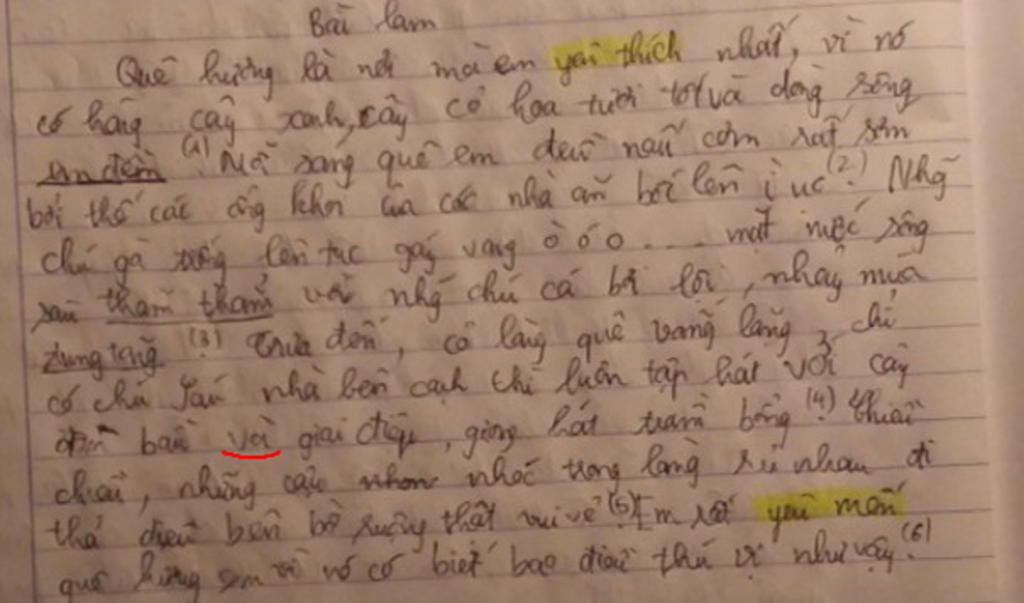 Bài làm
Quê hương là nơi mà em yêu thích nhất, vì nó
có hàng cây xanh, cây cỏ hoa tươi tốt và dòng sông
êm đềm (1). Mỗi sáng quê em đều nấu cơm rất sớm
bởi thế các ống khói của các nhà ăn bốc lên (2). Nhữ
chú gà trống liên tục gáy vang ò ó o .... mặt nước sông
sâu thăm thẳm với nhữ chú cá bơi lội, nhảy múa
tung tăng (3). Trưa đến, cả làng quê vắng lặng, chỉ
có chú Sáu nhà bên cạnh thì luôn tập hát với cây
đàn bầu với giai điệu, giọng hát trầm bổng (4).
chiều, những cậu nhóc trong làng rủ nhau đi
thả diều bên bờ ruộng thật vui vẻ (5). Em rất yêu mến
quê hương em vì nó có biết bao điều thú vị như vậy. (6)